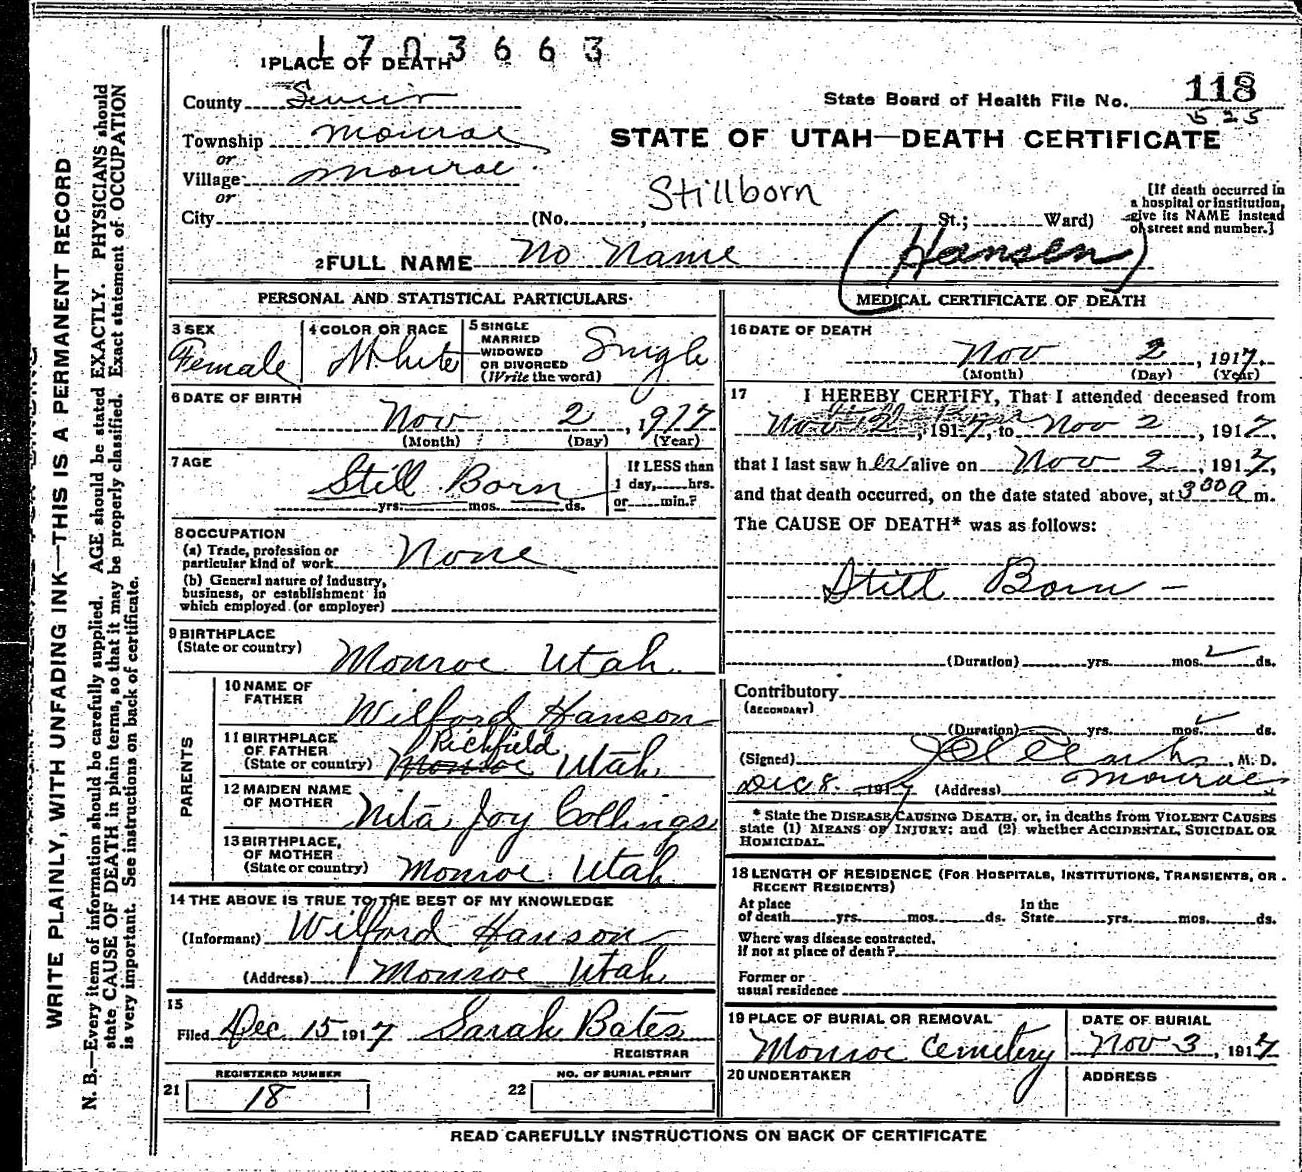 1703663
1 PLACE OF DEATH
County Sevier
State Board of Health File No. 118
525
Township Monroe
STATE OF UTAH—DEATH CERTIFICATE
or
Village Monroe
or
Stillborn
City (No. , St.; Ward)
[If death occurred in
a hospital or institution,
give its NAME instead
of street and number.]
2 FULL NAME No Name (Hansen)
PERSONAL AND STATISTICAL PARTICULARS
3 SEX
Female
4 COLOR OR RACE
White
5 SINGLE
MARRIED
WIDOWED
OR DIVORCED
(Write the word)
Single
6 DATE OF BIRTH
Nov 2, 1917
(Month) (Day) (Year)
7 AGE
Still Born
yrs. mos. ds.
If LESS than
1 day, hrs.
or min.?
8 OCCUPATION
(a) Trade, profession or
particular kind of work None
(b) General nature of industry,
business, or establishment in
which employed (or employer)
9 BIRTHPLACE
(State or country) Monroe Utah
PARENTS
10 NAME OF
FATHER Wilford Hanson
11 BIRTHPLACE
OF FATHER Richfield
(State or country) Monroe Utah
12 MAIDEN NAME
OF MOTHER Nita Joy Collings
13 BIRTHPLACE,
OF MOTHER
(State or country) Monroe Utah
14 THE ABOVE IS TRUE TO THE BEST OF MY KNOWLEDGE
(Informant) Wilford Hanson
(Address) Monroe Utah
15
Filed Dec. 15 1917 Sarah Bates
REGISTRAR
REGISTERED NUMBER
21 18
NO. OF BURIAL PERMIT
22
MEDICAL CERTIFICATE OF DEATH
16 DATE OF DEATH
Nov 2, 1917.
(Month) (Day) (Year)
17 I HEREBY CERTIFY, That I attended deceased from
Nov 2, 1917, to Nov 2, 1917,
that I last saw her alive on Nov 2, 1917,
and that death occurred, on the date stated above, at 3 00 a m.
The CAUSE OF DEATH* was as follows:
Still Born -
(Duration) yrs. mos. ds.
Contributory
(SECONDARY)
(Duration) yrs. mos. ds.
(Signed) , M. D.
Dec 8. 1917 (Address) Monroe
* State the DISEASE CAUSING DEATH, or, in deaths from VIOLENT CAUSES
state (1) MEANS OF INJURY; and (2) whether ACCIDENTAL, SUICIDAL OR
HOMICIDAL.
18 LENGTH OF RESIDENCE (FOR HOSPITALS, INSTITUTIONS, TRANSIENTS, OR
RECENT RESIDENTS)
At place
of death yrs. mos. ds.
In the
State yrs. mos. ds.
Where was disease contracted,
if not at place of death?
Former or
usual residence
19 PLACE OF BURIAL OR REMOVAL
Monroe Cemetery
DATE OF BURIAL
Nov 3, 1917
20 UNDERTAKER
ADDRESS
READ CAREFULLY INSTRUCTIONS ON BACK OF CERTIFICATE
WRITE PLAINLY, WITH UNFADING INK—THIS IS A PERMANENT RECORD
N. B.—Every item of information should be carefully supplied. AGE should be stated EXACTLY. PHYSICIANS should
state CAUSE OF DEATH in plain terms, so that it may be properly classified. Exact statement of OCCUPATION
is very important. See instructions on back of certificate.